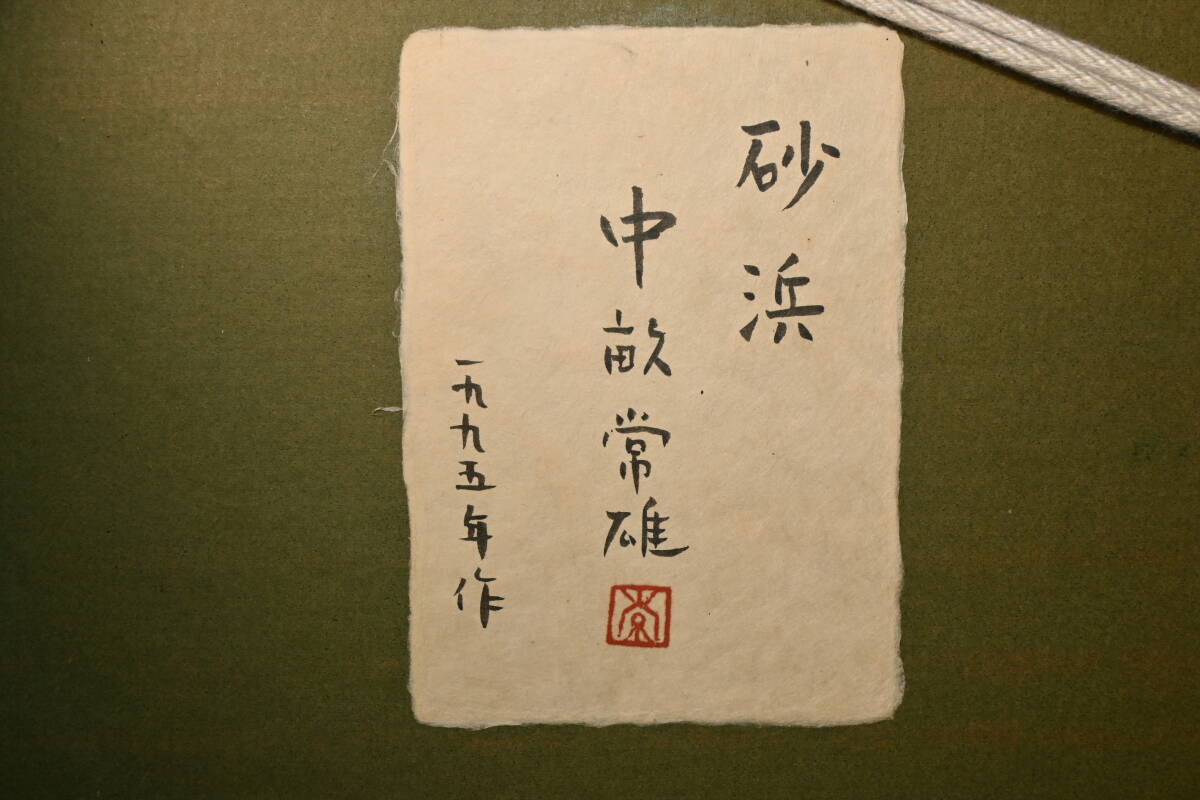 砂浜
中畝常雄
一九九五年作
常